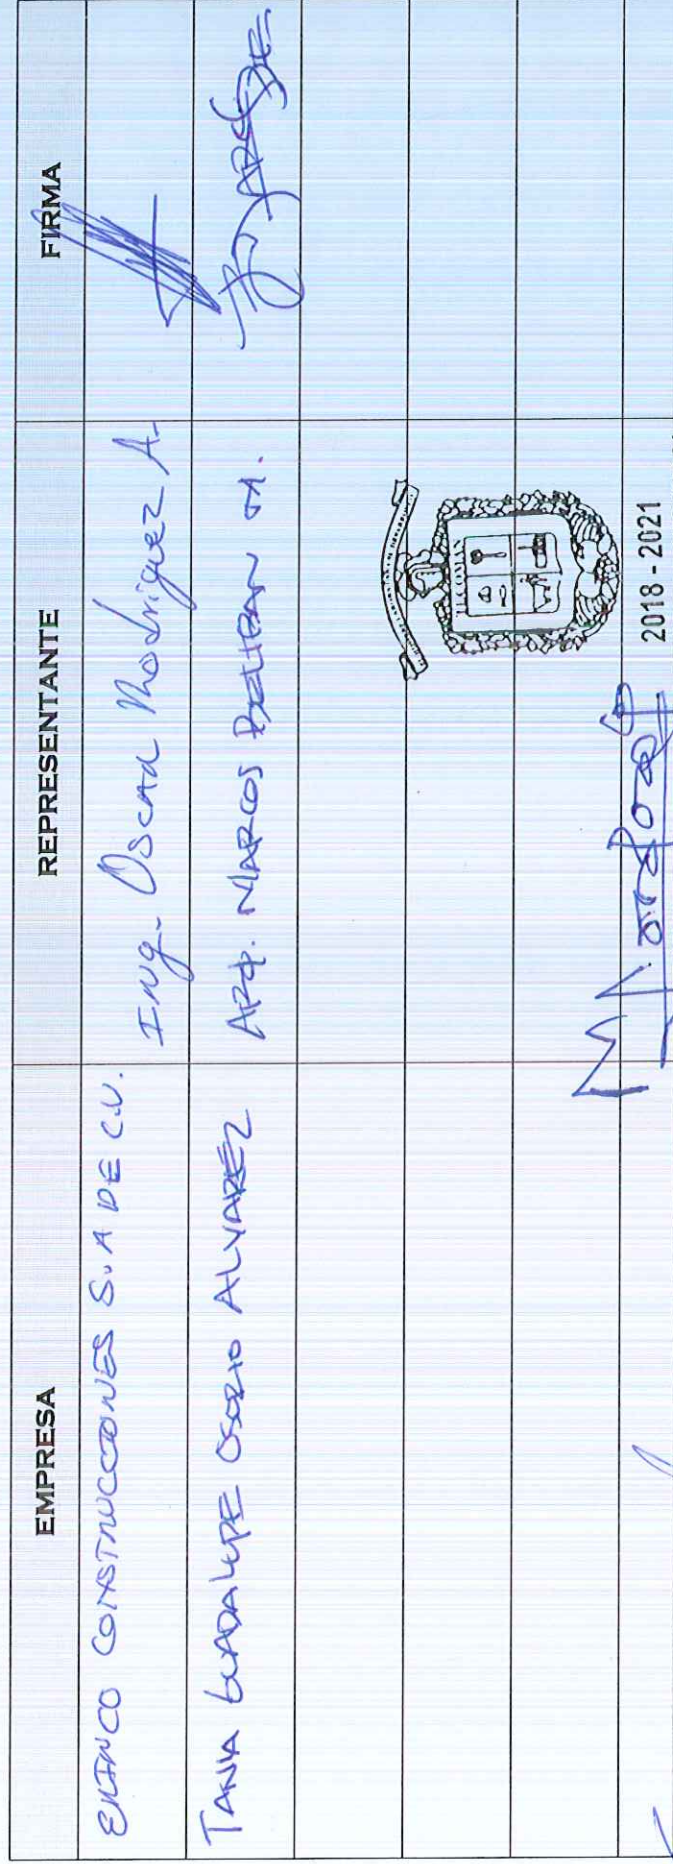 EMPRESA REPRESENTANTE FIRMA
CONSTRUCCIONES S.A DE C.V. Ing. Oscar Rodriguez A.
TANIA GUADALUPE OSORIO ALVAREZ ARQ. MARCOS BELTRAN M.
TECOMAN
2018 - 2021